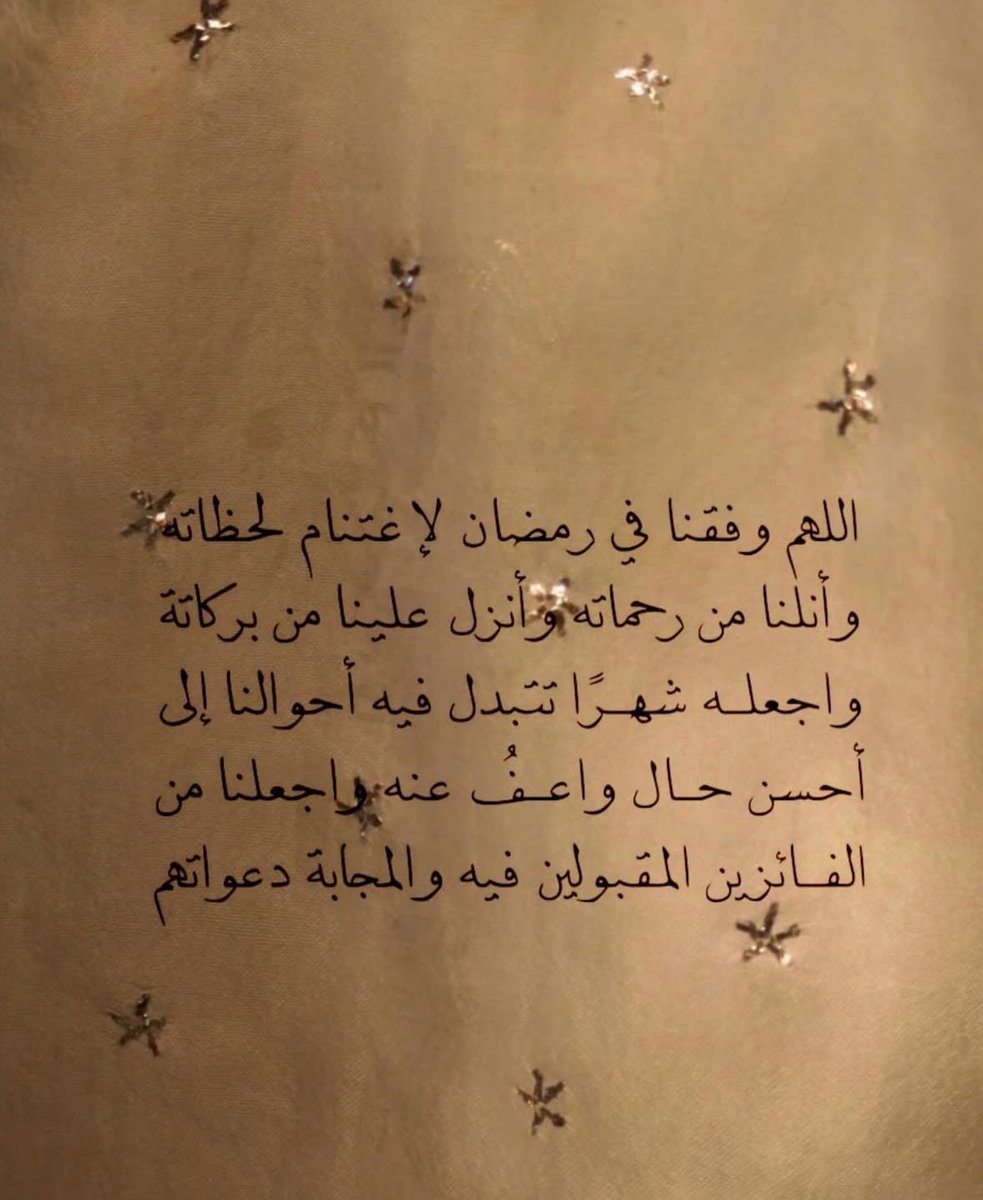 اللهم وفقنا في رمضان لإغتنام لحظاته
وأنلنا من رحماته وأنزل علينا من بركاتة
واجعلـه شهـرًا تتبدل فيه أحوالنا إلى
أحسن حـال واعـفُ عنه واجعلنا من
الفـائزين المقبولين فيه والمجابة دعواتهم